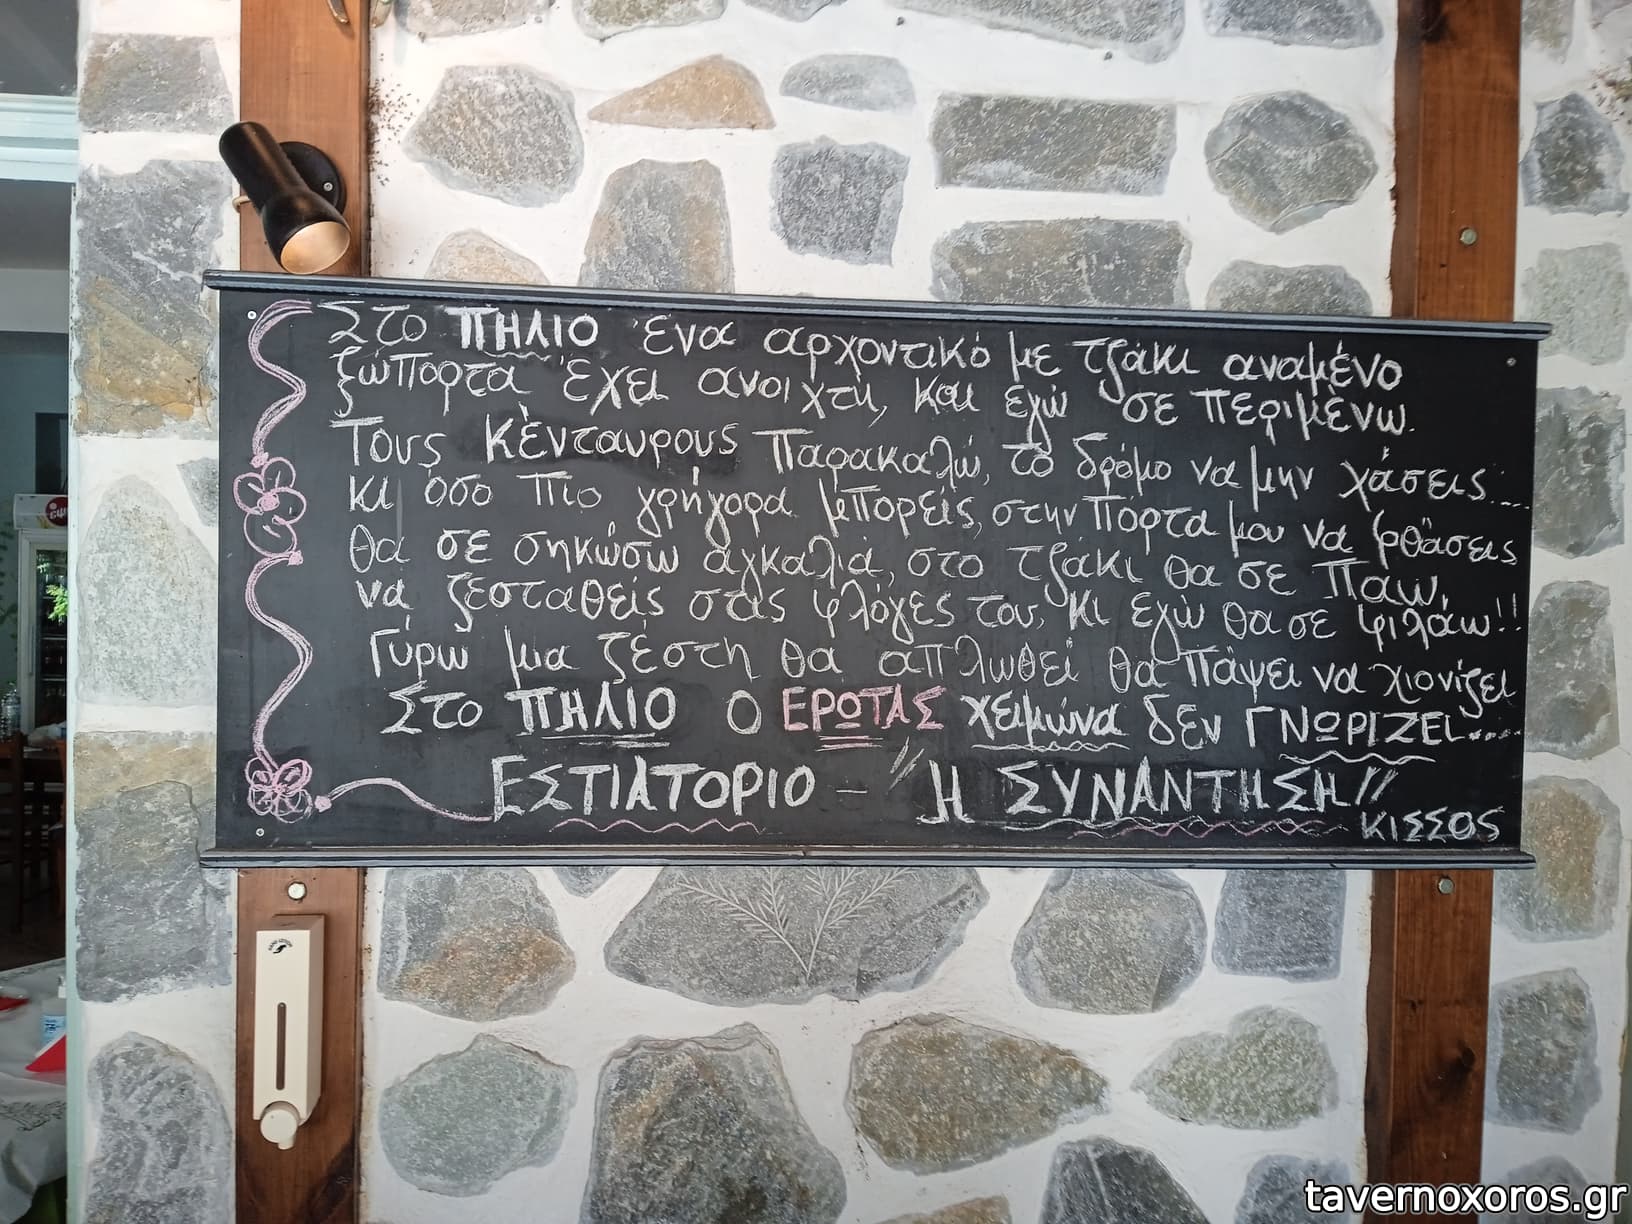 Στο ΠΗΛΙΟ ένα αρχοντικό με τζάκι αναμένο
ξώπορτα έχει ανοιχτή, και εγώ σε περιμένω.
Τους Κένταυρους παρακαλώ, το δρόμο να μην χάσεις....
κι όσο πιο γρήγορα μπορείς, στην πόρτα μου να φθάσεις
θα σε σηκώσω αγκαλιά, στο τζάκι θα σε πάω,
να ζεσταθείς στις φλόγες του, κι εγώ θα σε φιλάω!!
Γύρω μια ζέστη θα απλωθεί θα πάψει να χιονίζει
Στο ΠΗΛΙΟ ο ΕΡΩΤΑΣ χειμώνα δεν ΓΝΩΡΙΖΕΙ....
ΕΣΤΙΑΤΟΡΙΟ - "Η ΣΥΝΑΝΤΗΣΗ"
ΚΙΣΣΟΣ
tavernoxoros.gr